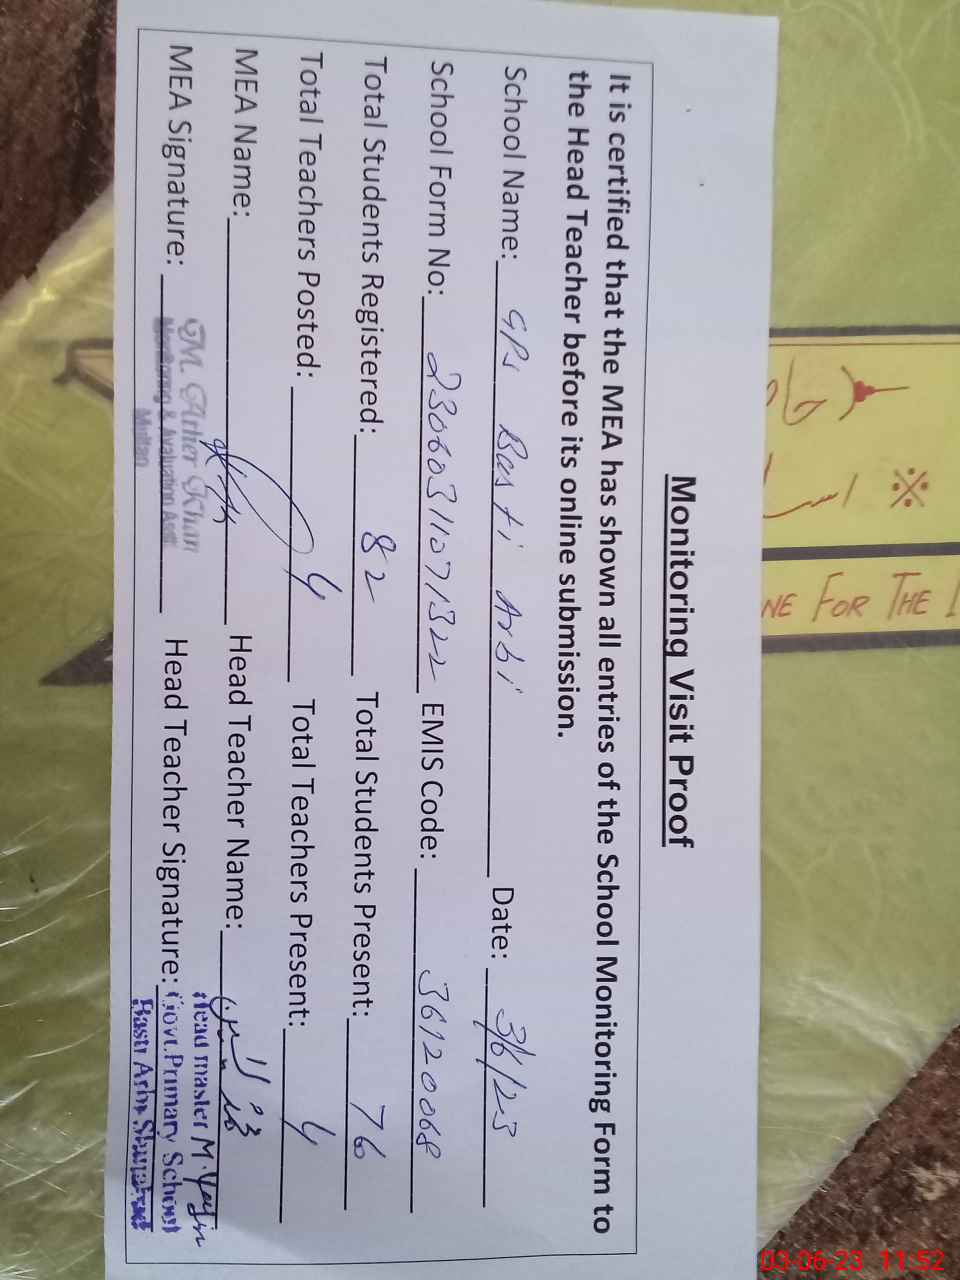 Monitoring Visit Proof
It is certified that the MEA has shown all entries of the School Monitoring Form to
the Head Teacher before its online submission.
School Name: GPS Basti Arbi Date: 3/6/23
School Form No: 23060311071322 EMIS Code: 36120068
Total Students Registered: 82 Total Students Present: 76
Total Teachers Posted: 4 Total Teachers Present: 4
MEA Name: Head Teacher Name:
MEA Signature: Head Teacher Signature:
M. Ather Khan
Monitoring & Evaluation Asstt
Multan
Head master M.
Govt. Primary School
Basti Arbi
NE FOR THE
03-06-23 11:52